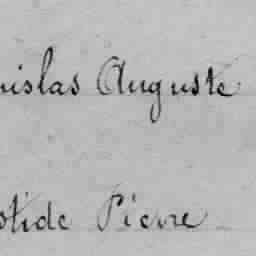 nislas Auguste
stide Pierre